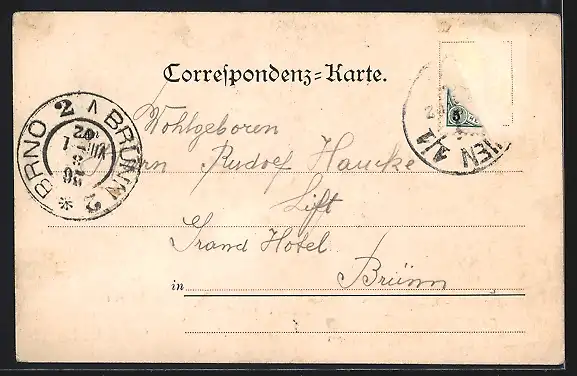 Correspondenz-Karte.
BRNO 2 BRÜNN 2
WIEN 1/1
5
Wohlgeboren
Herrn Rudolf Haucke
Lift
Grand Hotel
in Brünn